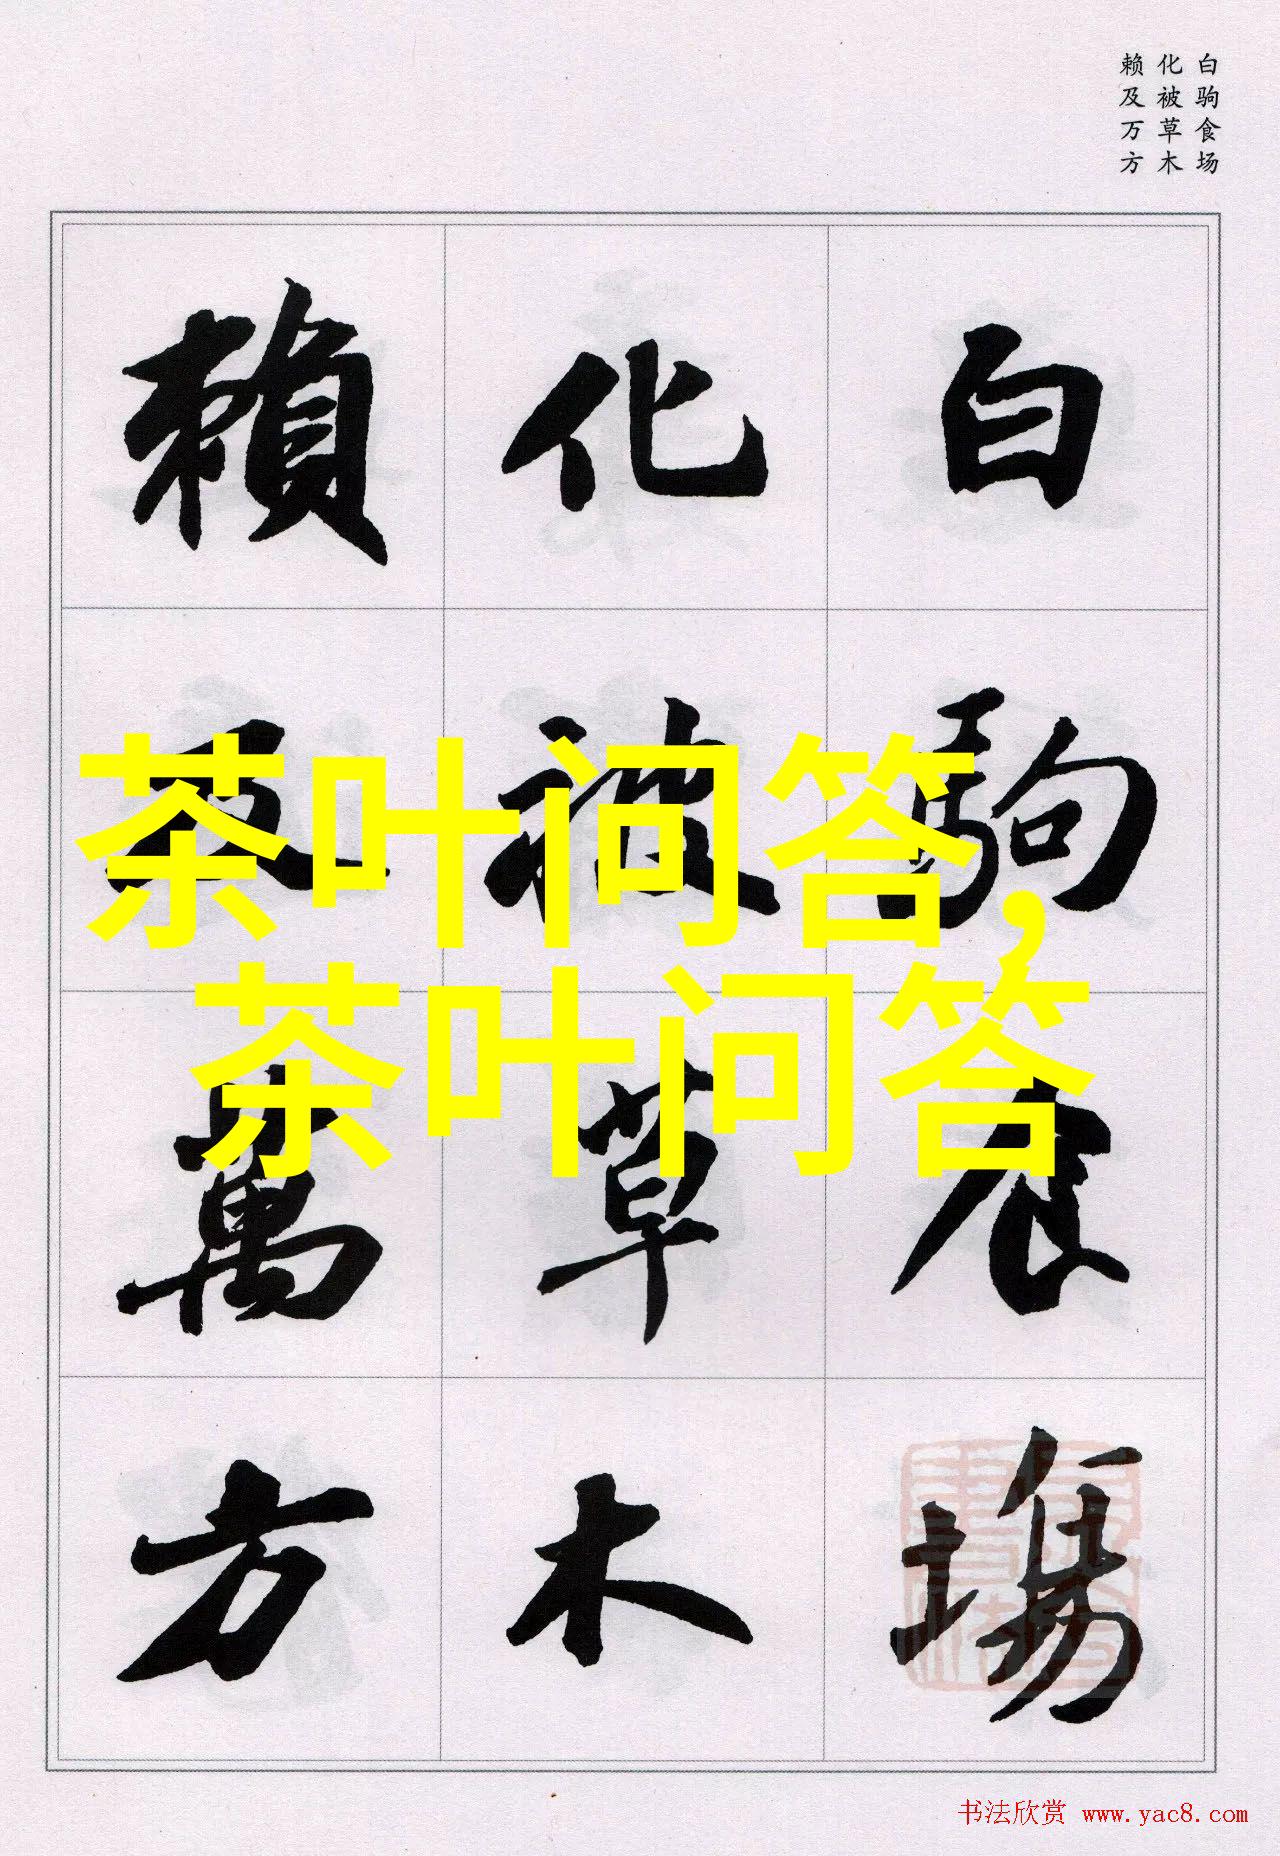 白驹食场
化被草木
赖及万方
白駒食場
化被草木
賴及萬方
茶叶问答,
茶叶问答
书法欣赏 www.yac8.com